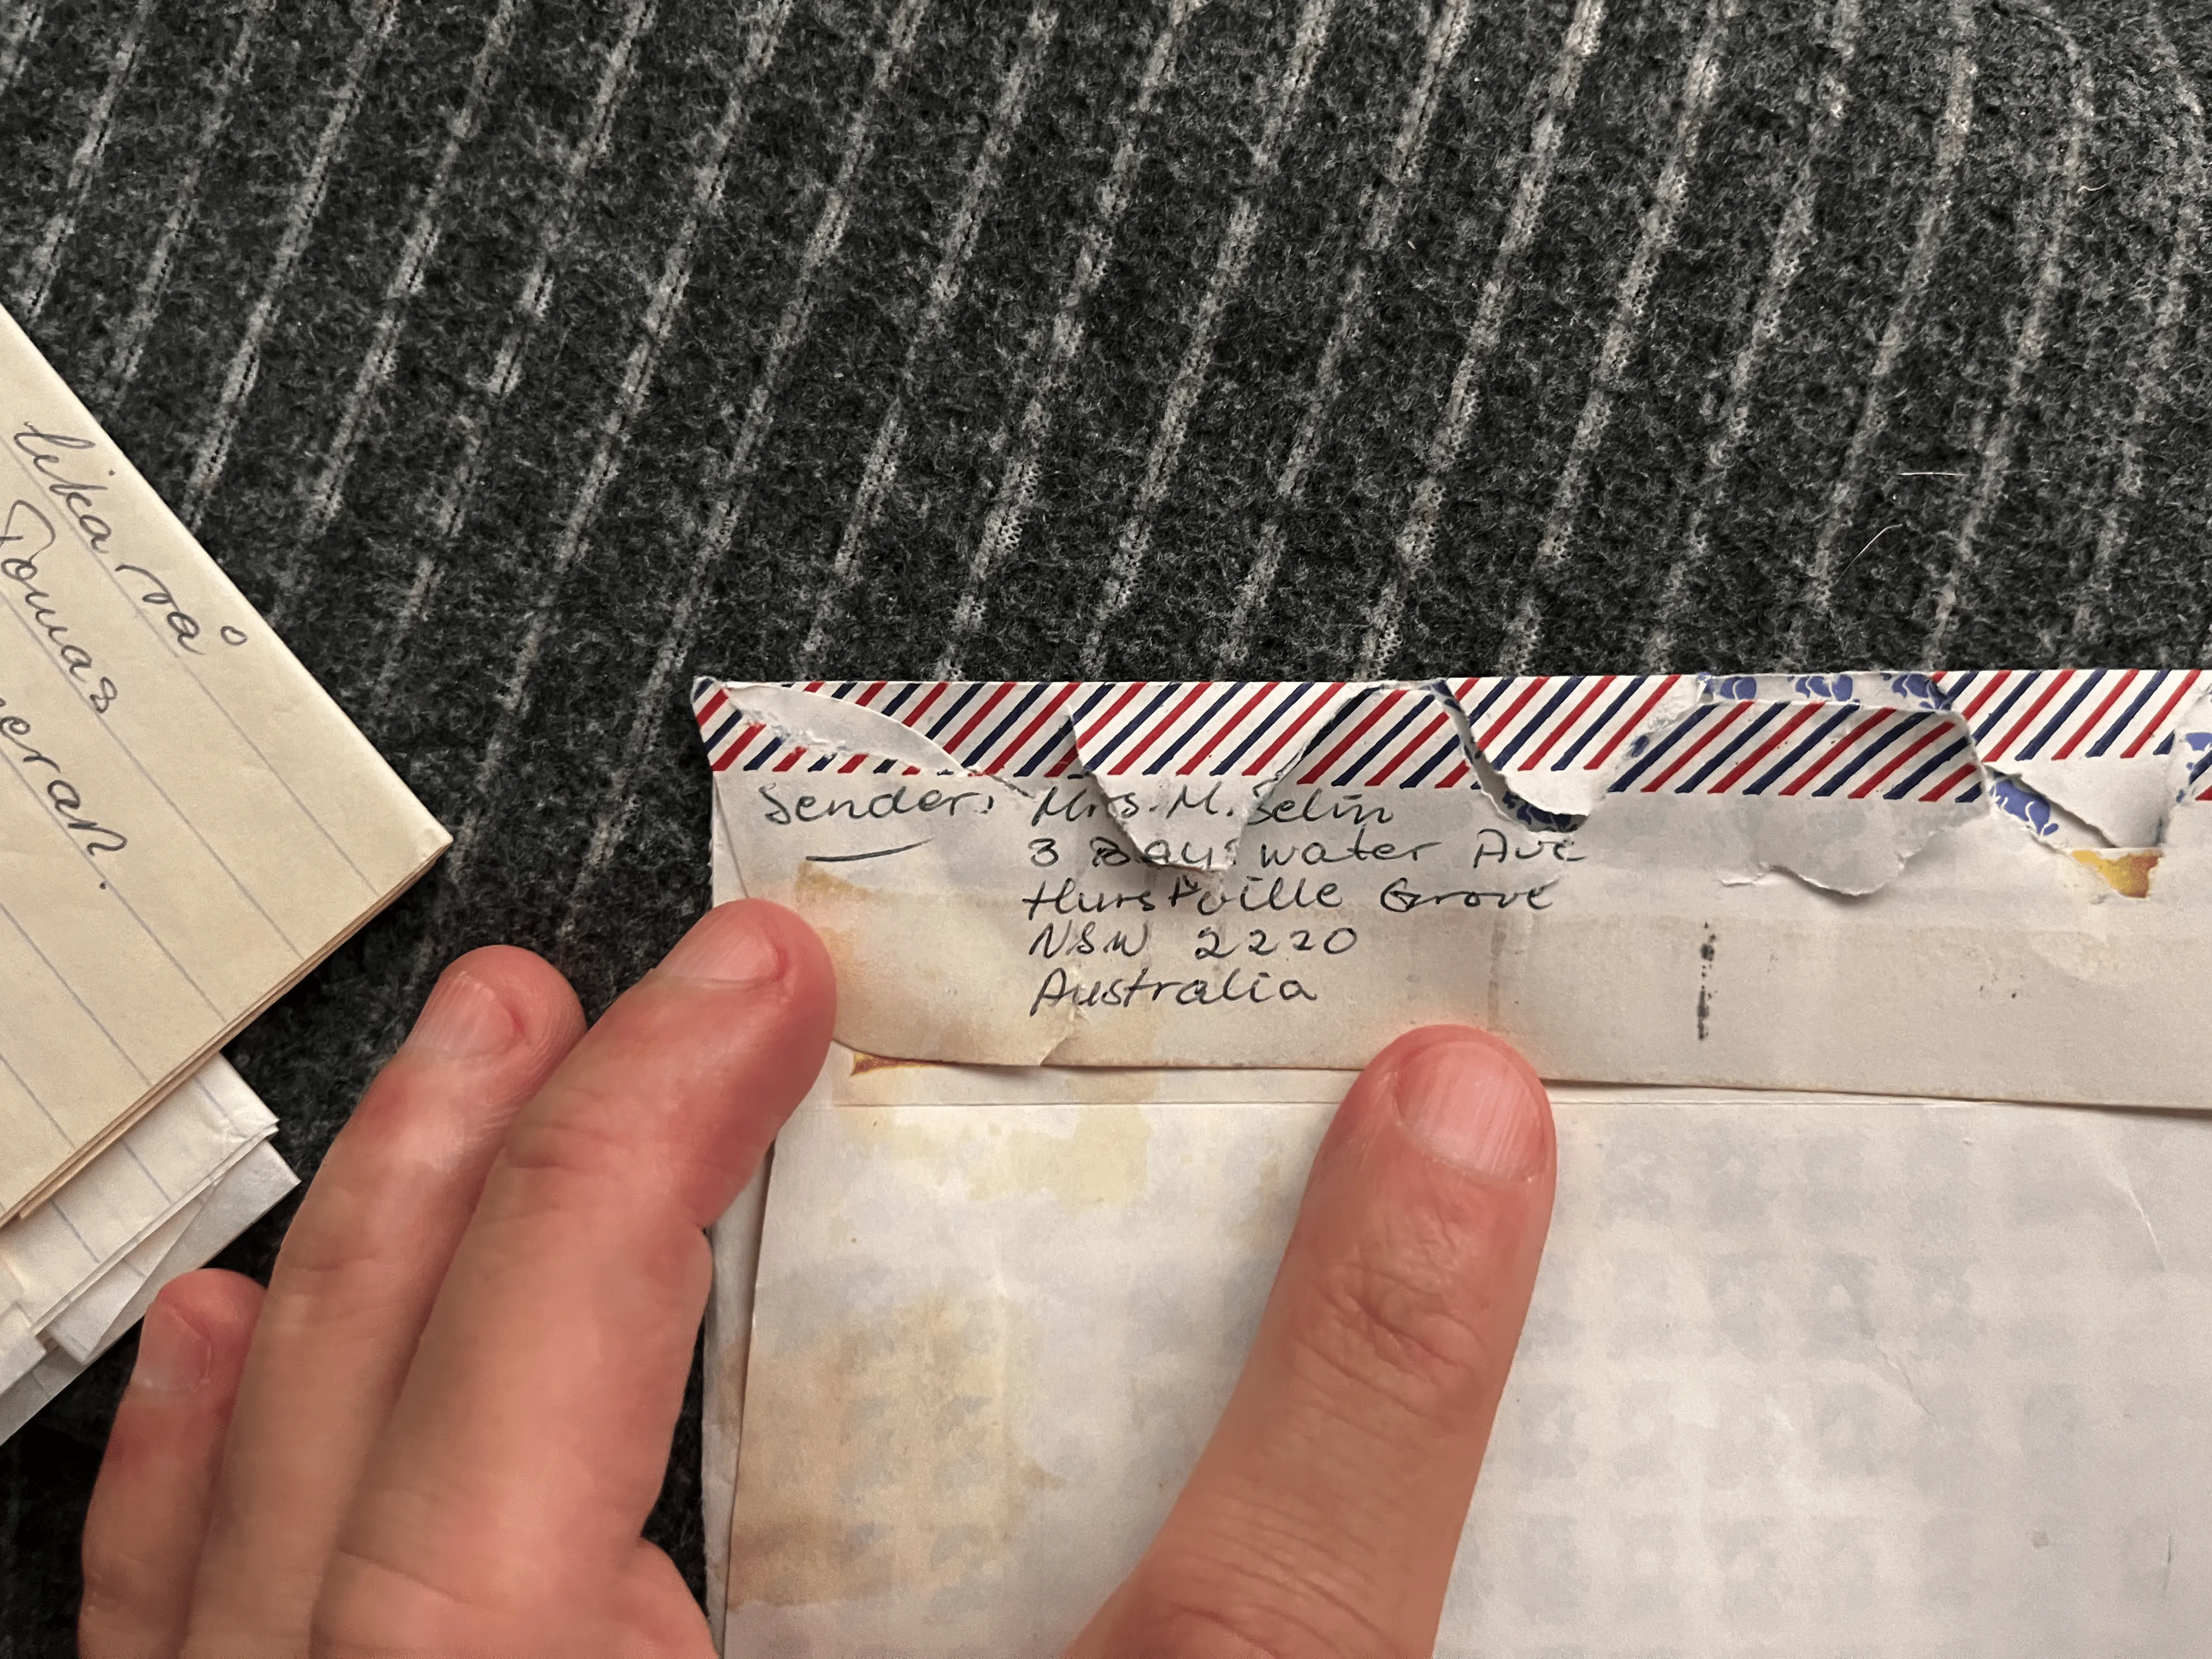 lika rå
Tomas
eran.
Sender: Mrs. M. Selin
3 Bayswater Ave
Hurstville Grove
NSW 2220
Australia